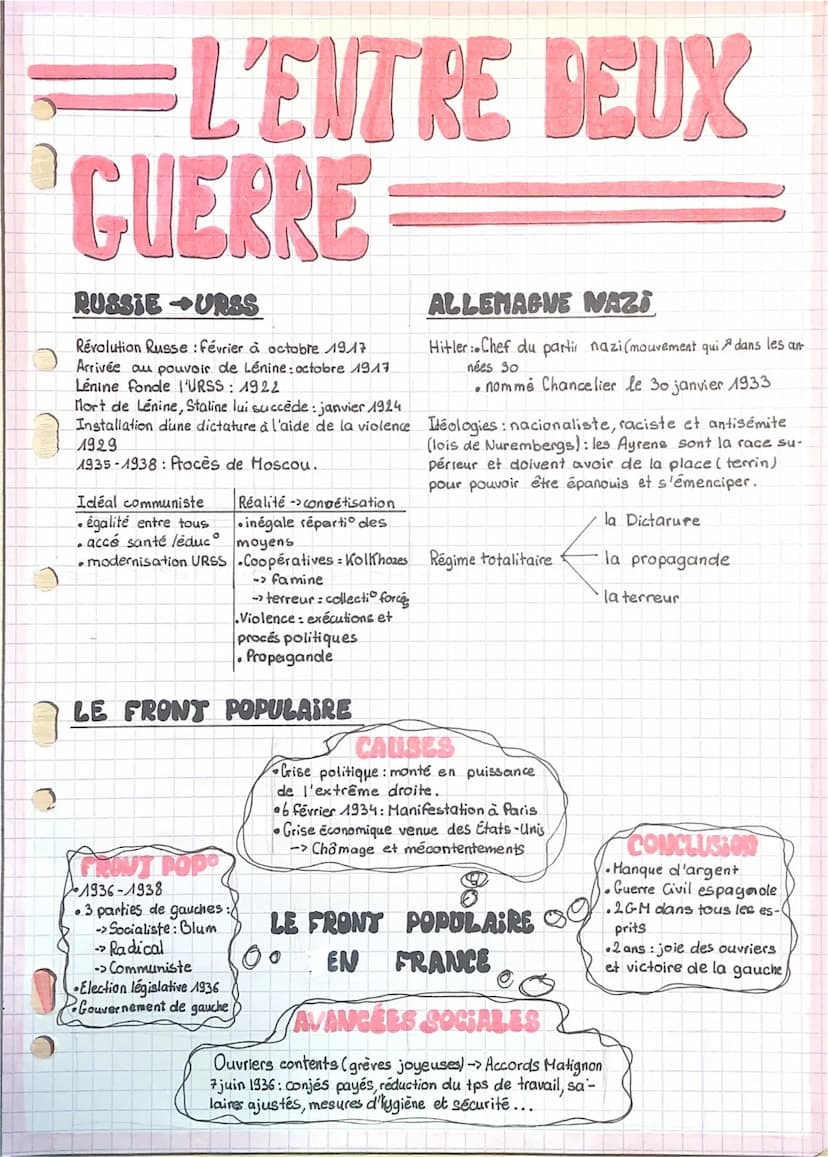 L'ENTRE DEUX
GUERRE
RUSSIE → URSS
Révolution Russe : février à octobre 1917
Arrivée au pouvoir de Lénine : octobre 1917
Lénine fonde l'URSS : 1922
Mort de Lénine, Staline lui succède : janvier 1924
Installation d'une dictature à l'aide de la violence
1929
1935-1938 : Procès de Moscou.
Idéal communiste
• égalité entre tous
• accé santé /éduc°
• modernisation URSS
Réalité -> concrétisation
• inégale réparti° des
moyens
• Coopératives = Kolkhozes
-> famine
-> terreur = collecti° forcée
• Violence : exécutions et
procés politiques
• Propagande
ALLEMAGNE NAZI
Hitler : • Chef du parti nazi (mouvement qui ↗ dans les an-
nées 30
• nommé Chancelier le 30 janvier 1933
Idéologies : nacionaliste, raciste et antisémite
(lois de Nurembergs) : les Ayrens sont la race su-
périeur et doivent avoir de la place (terrin)
pour pouvoir être épanouis et s'émenciper.
Régime totalitaire
la Dictarure
la propagande
la terreur
LE FRONT POPULAIRE
CAUSES
• Crise politique : monté en puissance
de l'extrême droite.
• 6 février 1934 : Manifestation à Paris
• Crise économique venue des États-Unis
-> Chômage et mécontentements
FRONT POP°
• 1936-1938
• 3 parties de gauches :
-> Socialiste : Blum
-> Radical
-> Communiste
• Election législative 1936
• Gouvernement de gauche
LE FRONT POPULAIRE
EN FRANCE
CONCLUSION
• Manque d'argent
• Guerre Civil espagnole
• 2GM dans tous les es-
prits
• 2 ans : joie des ouvriers
et victoire de la gauche
AVANCÉES SOCIALES
Ouvriers contents (grèves joyeuses) -> Accords Matignon
7 juin 1936 : conjés payés, réduction du tps de travail, sa-
laires ajustés, mesures d'hygiène et sécurité...